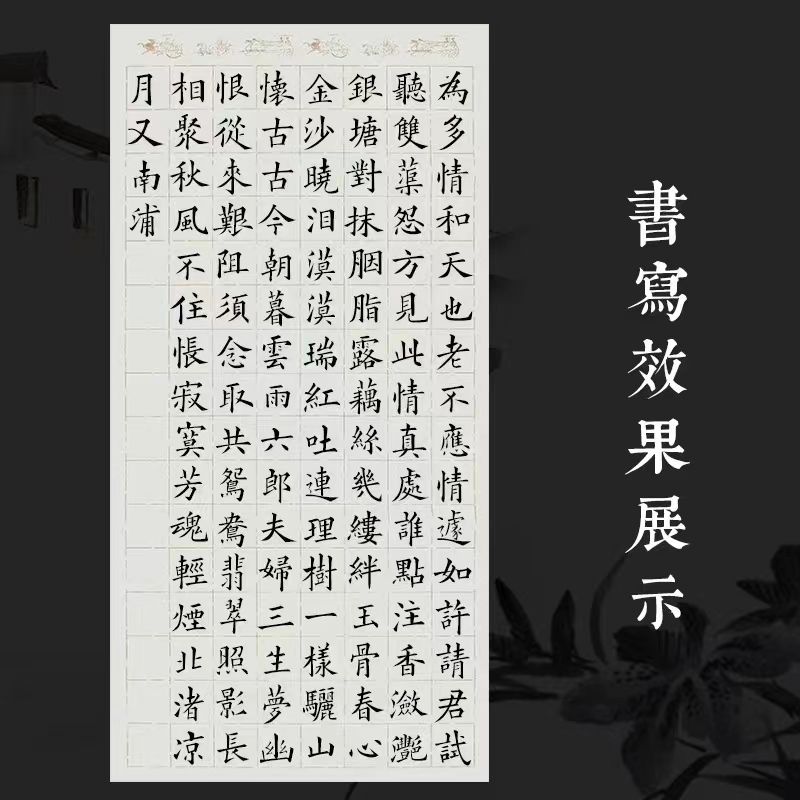 書寫效果展示
為多情和天也老不應情遽如許請君試
聽雙蕖怨方見此情真處誰點注香瀲灧
銀塘對抹胭脂露藕絲幾縷絆玉骨春心
金沙曉泪漠漠瑞紅吐連理樹一樣驪山
懷古古今朝暮雲雨六郎夫婦三生夢幽
恨從來艱阻須念取共鴛鴦翡翠照影長
相聚秋風不住悵寂寞芳魂輕煙北渚凉
月又南浦